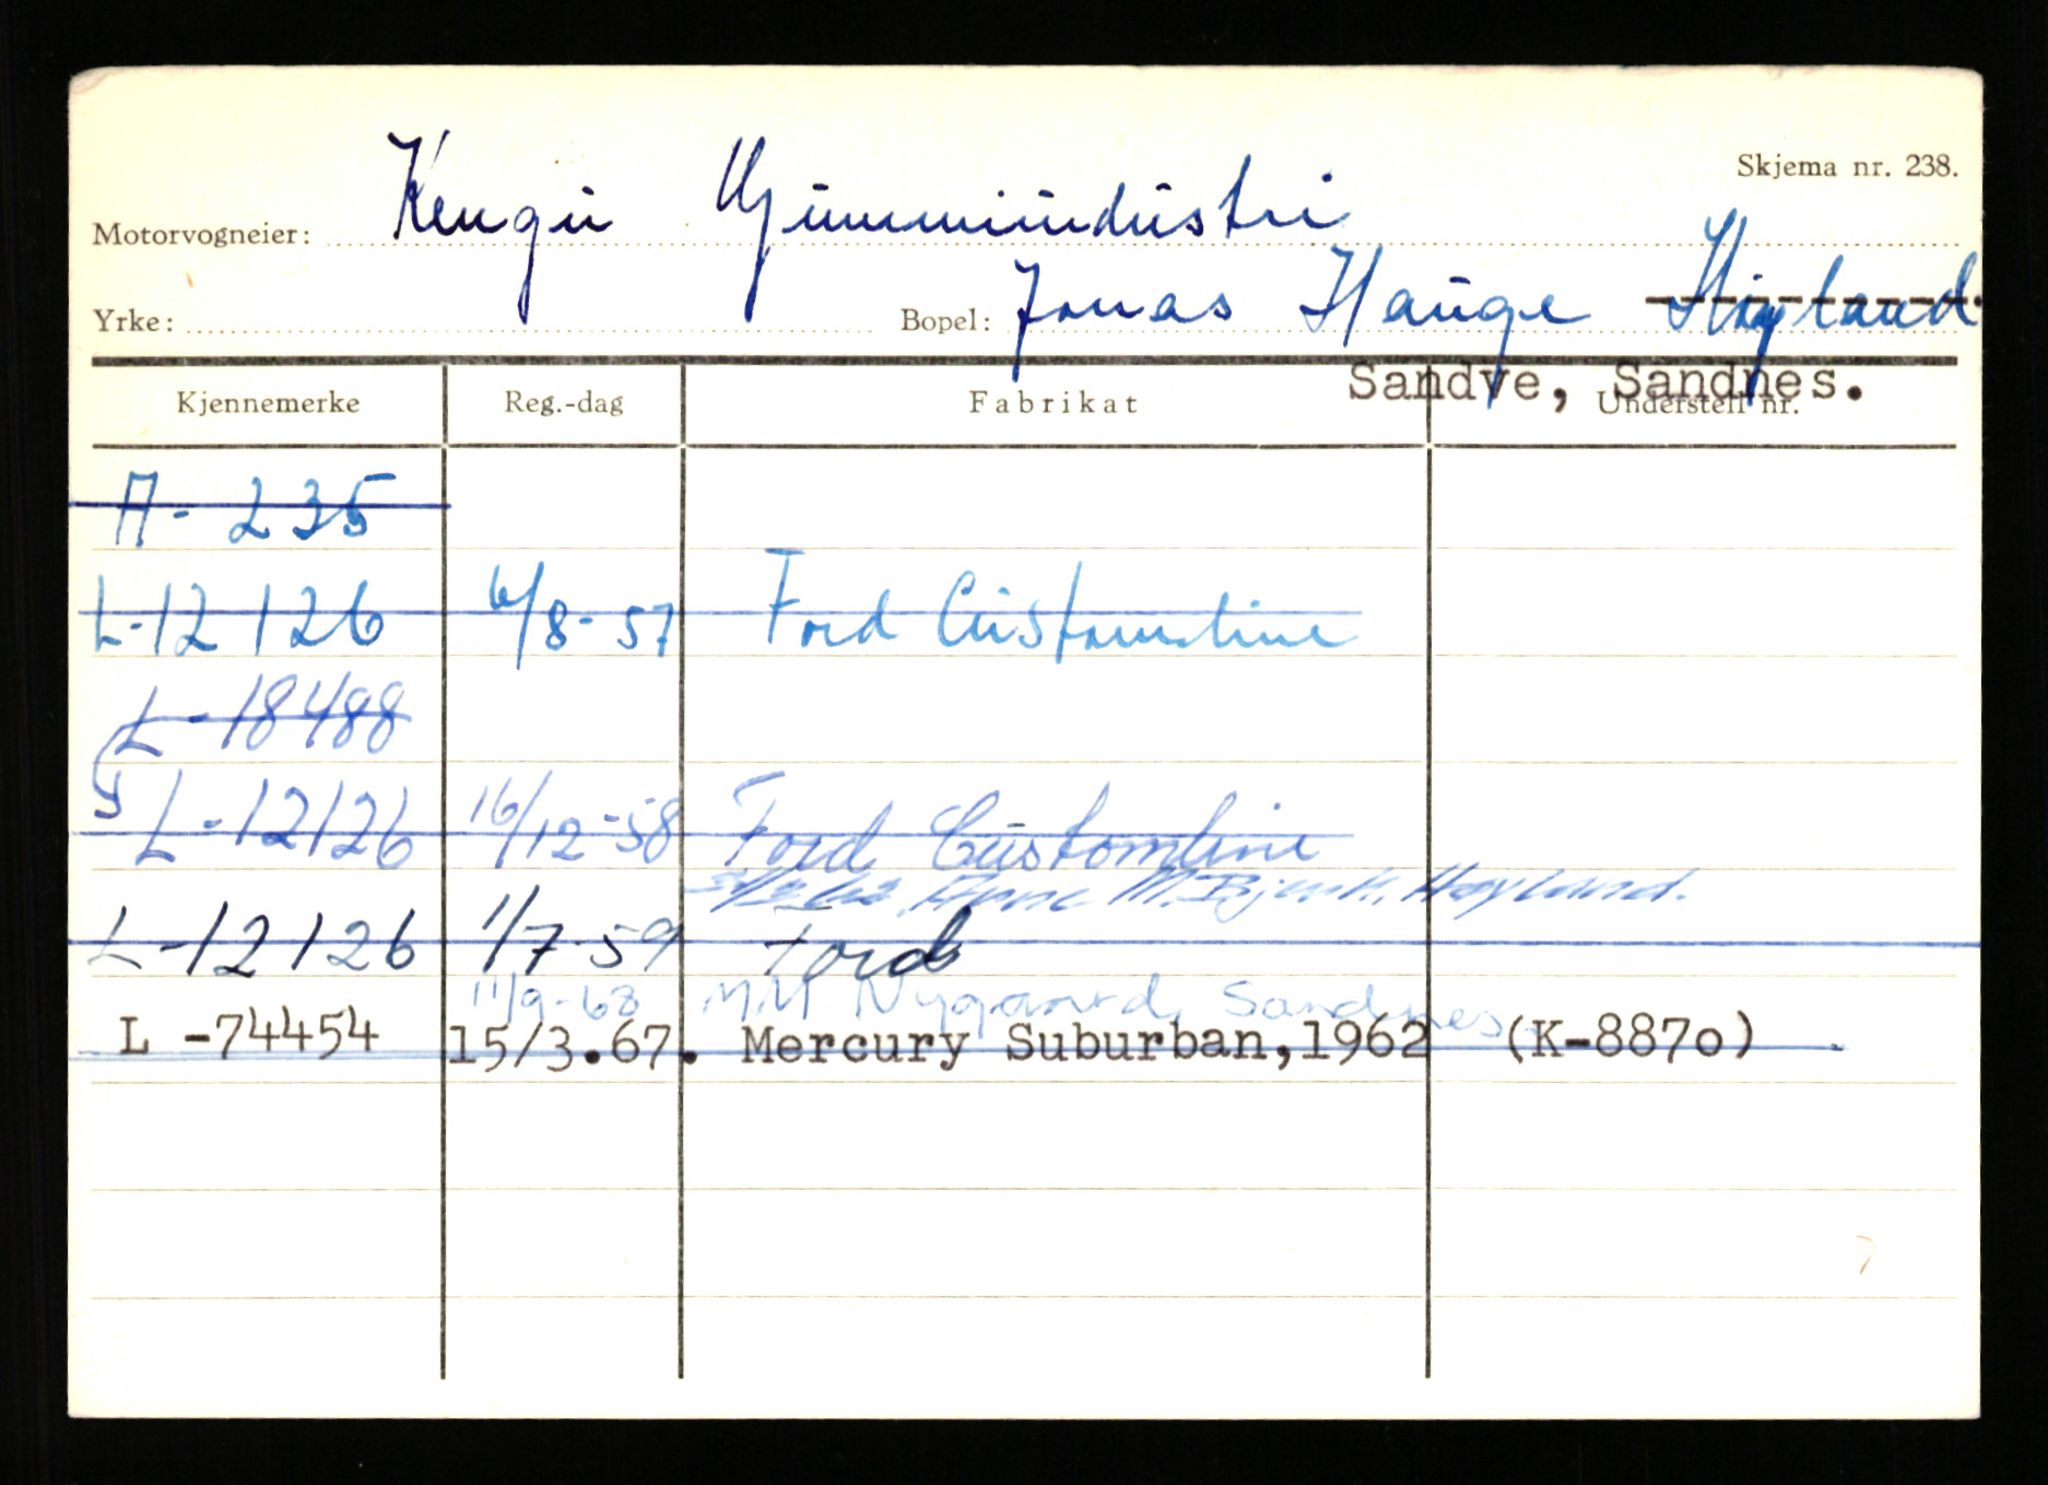 Skjema nr. 238.
Motorvogneier: Kengu Gummiindustri
Yrke: Bopel: Jonas Hauge Høyland
Sandve, Sandnes.
Kjennemerke Reg.-dag Fabrikat Understell nr.
A - 235
L-12126 6/8-57 Ford Customline
L-18488
L-12126 16/12-58 Ford Customline
Arne M. Bjerk, Høyland.
L-12126 1/7-59 Ford
11/9-68 MM Nygaard, Sandnes
L -74454 15/3.67. Mercury Suburban,1962 (K-8870)